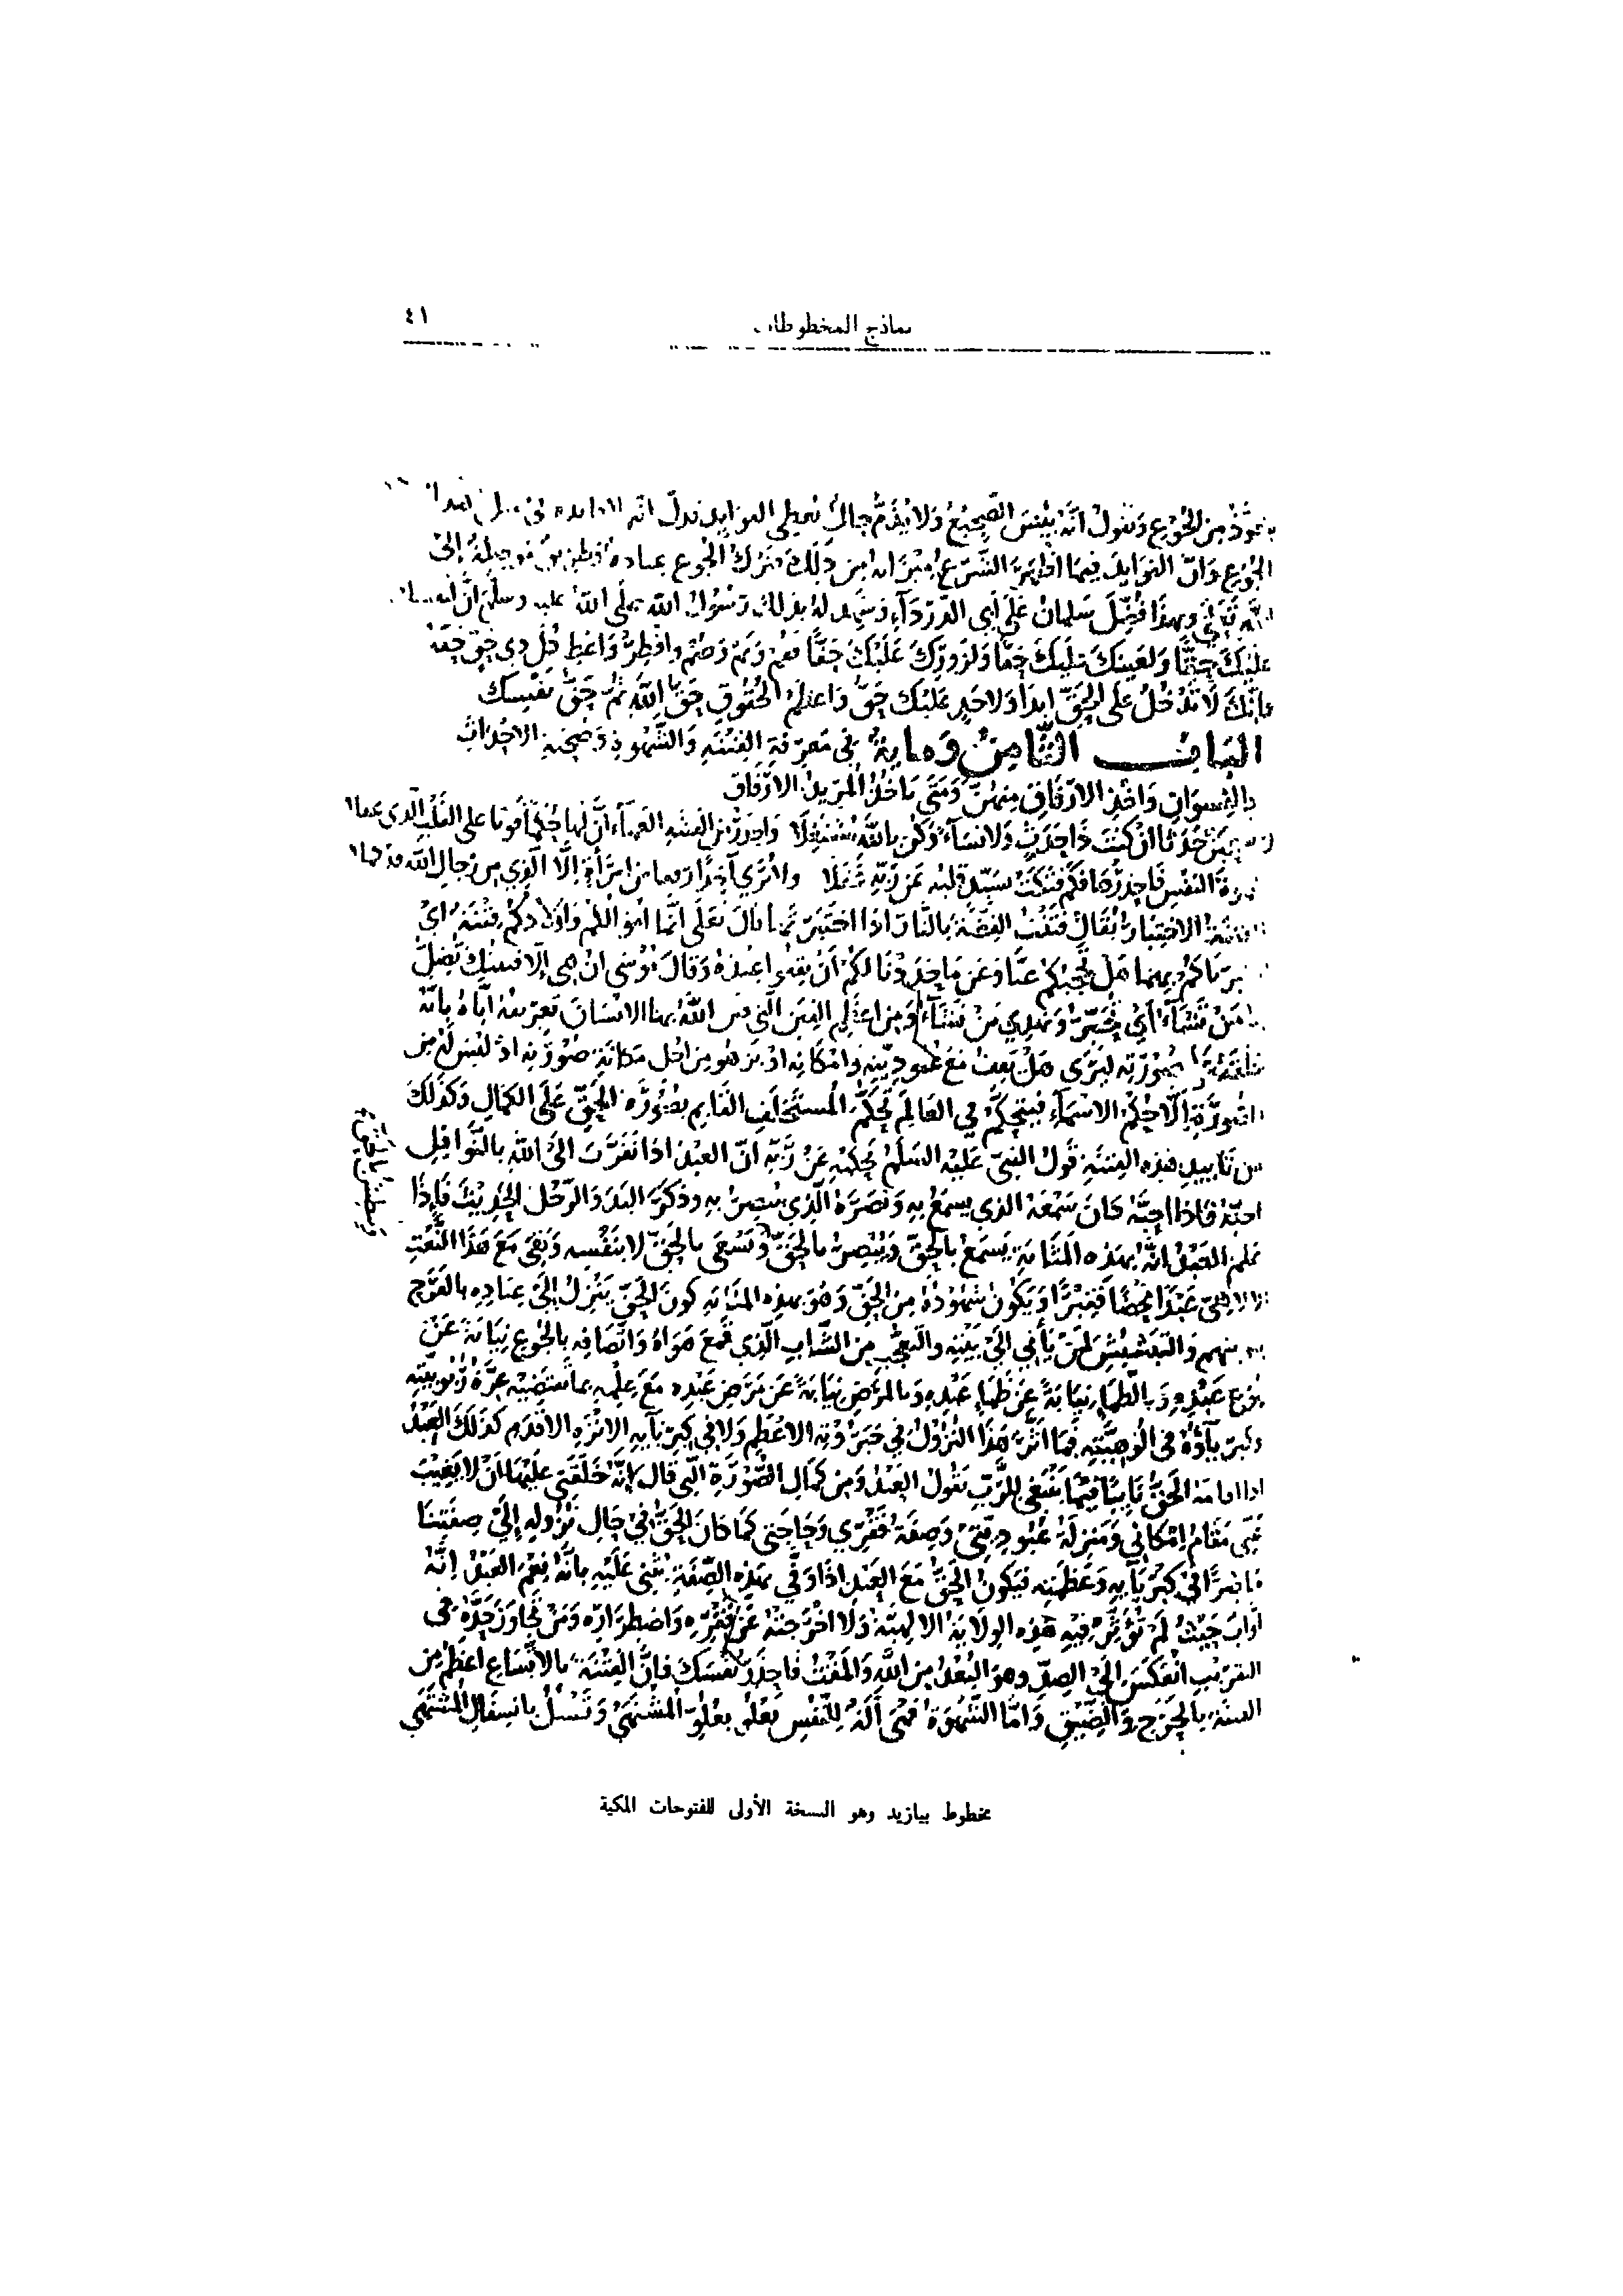 نماذج المخطوطات
٤١
من الجوع ونقول انه بئس الضجيع ولا يقدم
الجوع وان الفوايد فيما اظهره الشرع ميزانه من ذلك فترك الجوع عبادة إلى
وبهذا فُضِّل سلمان على أبي الدرداء وشهد له بذلك رسول الله صلى الله عليه وسلم ان
عليك حقًّا ولعينك عليك حقًّا ولزورك عليك حقًّا فقم ونم وصم وافطر واعط كل ذي حق حقه
فانك لا تدخل على الحق ابدا ولاحد عليك حق واعظم الحقوق حق الله ثم حق نفسك
الباب الثامن وماية في معرفة الفتنه والشهوة وصحبة الاحداث
بالنسوان واخذ الارفاق منهن ومتى ياخذ المريد الارفاق
لا تصحبن حدثا ان كنت ذا حدث ولا نساء وكن بالله مشتغلا واحذر من الفتنه العمياء ان لها حكما قويا على القلب الذي
النفس فاحذرها فكم فتكت بسيد قلبه عن ربه غفلا ولا ترى آخذا رفقا من امرأة إلا الذي من رجال الله
الفتنة الاختبار يقال فتنت الفضة بالنار اذا اختبرتها قال تعلى انما اموالكم واولادكم فتنة اي
بهما هل تحجبكم عنا وعن ما حددنا لكم ان تقفوا عنده وقال موسى ان هي إلا فتنتك تضل
بها من تشاء اي تحير وتهدي من تشاء ومن اعظم الفتن التي فتن الله بها الانسان تعريفه اياه بانه
خلقه على صورته ليرى هل يقف مع عبوديته وامكانه او يزهو من اجل مكانة صورته اذ ليس له من
الصورة إلا حكم الاسماء فيتحكم في العالم تحكم المستخلف القايم بصورة الحق على الكمال وكذلك
من تاييد هذه الفتنة قول النبي عليه السلم يحكيه عن ربه ان العبد اذا تقرب الى الله بالنوافل
احبه فاذا احبه كان سمعه الذي يسمع به وبصره الذي يبصر به وذكر اليد والرجل الحديث فإذا
علم العبد انه بهذه المثابة يسمع بالحق ويبصر بالحق ويسعى بالحق لا بنفسه وبقي مع هذا النعت
ويبطش بالحق
الالاهي عبدا محضا فقيرا ويكون شهوده من الحق وهو بهذه المثابه كون الحق ينزل إلى عباده بالفرح
بتوبتهم والتبشبش لمن يأتي الى بيته والتعجب من الشاب الذي قمع هواه واتصافه بالجوع نيابة عن
جوع عبده وبالظماء نيابة عن ظماء عبده وبالمرض نيابة عن مرض عبده مع علمه بما تقتضيه عزة ربوبيته
وكبرياؤه في الوهيته فما اثر هذا النزول في جبروته الاعظم ولا في كبريآيه الانزه الاقدم كذلك العبد
اذا اقامه الحق نايبا فيما ينبغي للرب يقول العبد ومن كمال الصورة التي قال إنه خلقني عليها ان لا يغيب
عني مقام إمكاني ومنزلة عبوديتي وصفة فقري وحاجتي كما كان الحق في حال نزوله إلى صفتنا
حاضرا في كبريآيه وعظمته فيكون الحق مع العبد اذا وفى بهذه الصفة يثني عليه بانه نعم العبد إنه
أواب حيث لم تؤثر فيه هذه الولاية الالهية ولا اخرجته عن فقره واضطراره ومن تجاوز حده في
التقريب انعكس إلى الضد وهو البعد من الله والمقت فاحذر نفسك فان الفتنة بالاتساع اعظم من
الفتنة بالحرج والضيق واما الشهوة فهي آلة للنفس تعلو بعلو المشتهى وتسفل باستفال المشتهى
مخطوط بيازيد وهو النسخة الأولى للفتوحات المكية